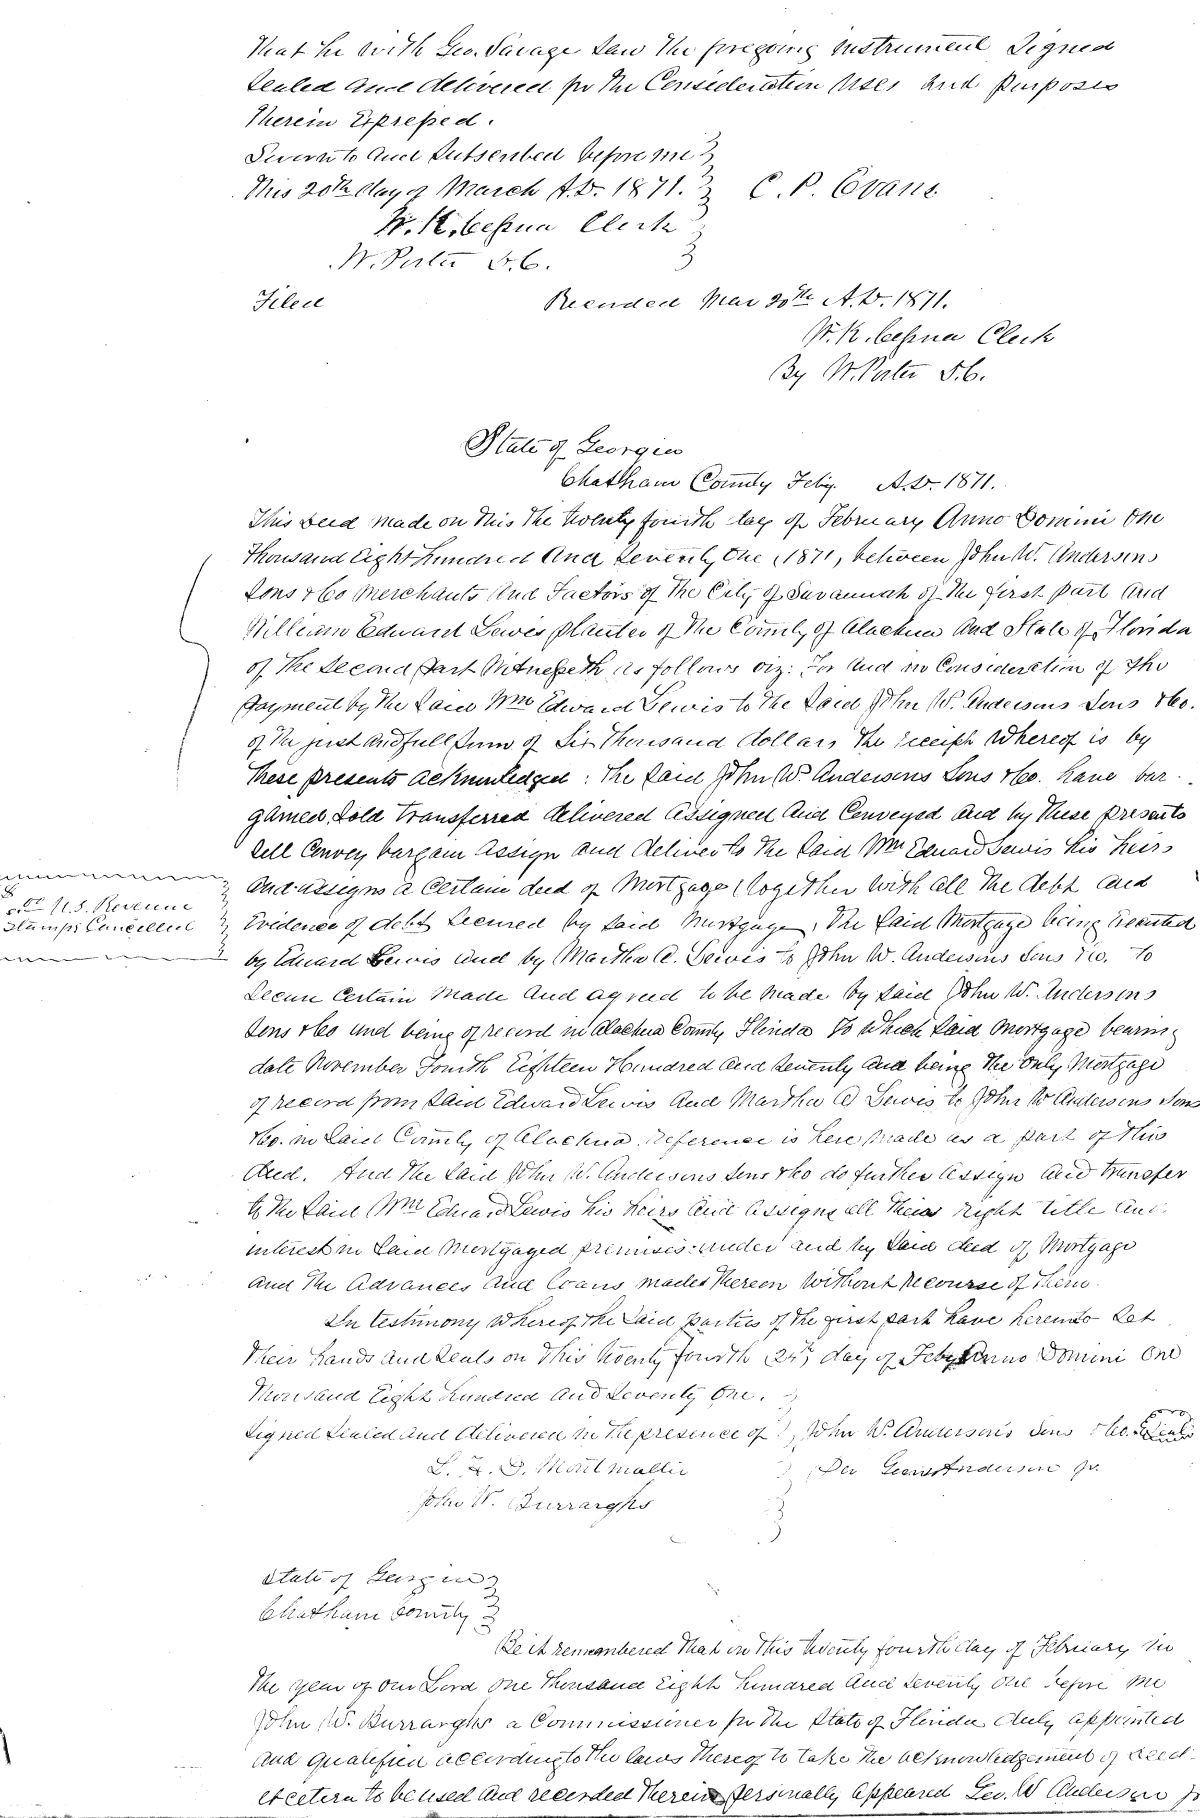 That he with Geo. Savage saw the foregoing instrument Signed
Sealed and delivered for the Consideration uses and purposes
Therein Expressed.
Sworn to and Subscribed before me
This 20th day of March A.D. 1871. C. P. Evans
W. K. Cessna Clerk
W. Porter D.C.
Filed Recorded Mar 20th A.D. 1871.
W. K. Cessna Clerk
By W. Porter D.C.
State of Georgia
Chatham County Feby. A.D. 1871.
This Deed made on this the twenty fourth day of February Anno Domini One
Thousand Eight hundred and Seventy One, 1871, between John W. Andersons
Sons & Co Merchants and Factors of the City of Savannah of the first part and
William Edward Lewis planter of the County of Alachua and State of Florida
of the Second part Witnesseth as follows viz: For and in Consideration of the
payment by the Said Wm Edward Lewis to the Said John W. Andersons Sons & Co.
of the just and full Sum of Six Thousand dollars the receipt whereof is by
these presents acknowledged: the Said John W. Andersons Sons & Co. have bar-
gained, Sold transferred delivered assigned and Conveyed and by these presents
Sell Convey bargain assign and deliver to the Said Wm Edward Lewis his heirs
and assigns a Certain deed of Mortgage (together with all the debt and
Evidence of debt Secured by said Mortgage, the Said Mortgage being Executed
U.S. Revenue
Stamps Cancelled
by Edward Lewis and by Martha A. Lewis to John W. Andersons Sons & Co. to
Secure Certain made and agreed to be made by said John W. Andersons
Sons & Co and being of record in Alachua County Florida to which Said Mortgage bearing
date November Fourth Eighteen Hundred and Seventy and being the only Mortgage
of record from Said Edward Lewis and Martha A Lewis to John W Andersons Sons
& Co. in Said County of Alachua. reference is here made as a part of this
deed. And the Said John W. Andersons Sons & Co do further assign and transfer
to the Said Wm Edward Lewis his heirs and assigns all their right title and
interest in Said Mortgaged premises under and by Said deed of Mortgage
and the Advances and Loans made thereon without recourse of them.
In testimony whereof the Said parties of the first part have hereunto Set
their hands and Seals on this twenty fourth, 24th, day of Feby Anno Domini One
Thousand Eight hundred and Seventy One.
Signed Sealed and delivered in the presence of John W. Anderson's Sons & Co. Seal
L. F. D. Montmollin Per Geo W Anderson Jr.
John W. Burroughs
State of Georgia
Chatham County
Be it remembered that on this twenty fourth day of February in
the year of our Lord One Thousand Eight hundred and Seventy One before me
John W. Burroughs a Commissioner for the State of Florida duly appointed
and qualified according to the laws thereof to take the acknowledgement of deed
et cetera to be used and recorded therein personally appeared Geo. W Anderson Jr